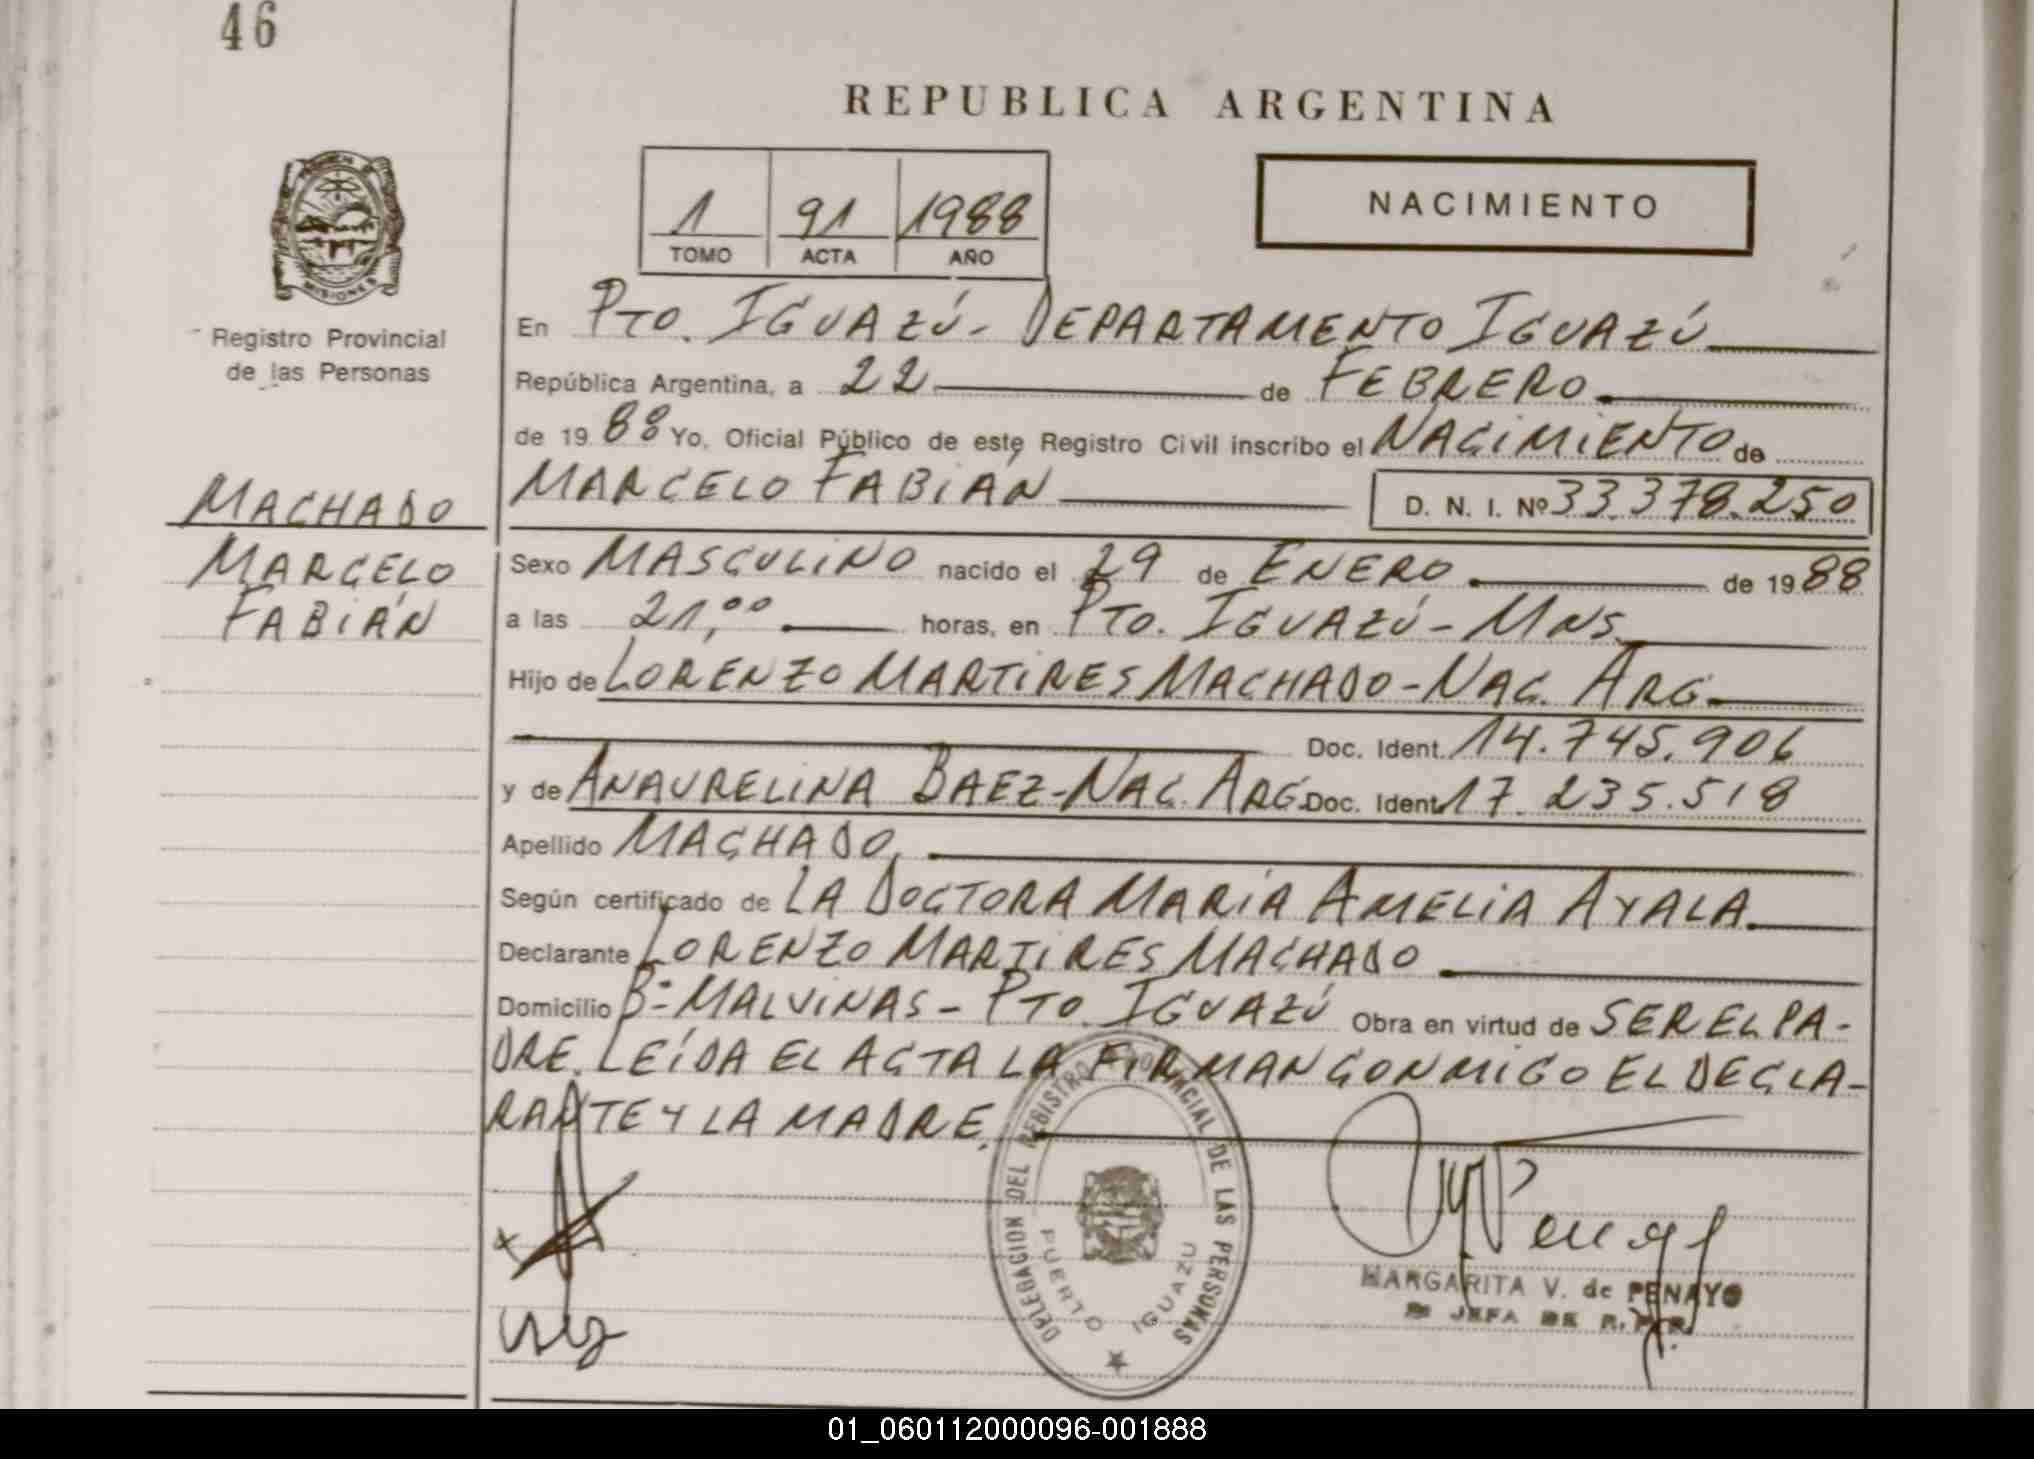 46
REPUBLICA ARGENTINA
1 91 1988
TOMO ACTA AÑO
NACIMIENTO
MISIONES
Registro Provincial
de las Personas
En PTO. IGUAZÚ - DEPARTAMENTO IGUAZÚ
República Argentina, a 22 de FEBRERO
de 19 88 Yo, Oficial Público de este Registro Civil inscribo el NACIMIENTO de
MARCELO FABIÁN D. N. I. Nº 33.378.250
MACHADO
MARCELO
FABIÁN
Sexo MASCULINO nacido el 29 de ENERO de 19 88
a las 21,00 horas, en PTO. IGUAZÚ - MNS
Hijo de LORENZO MARTIRES MACHADO - NAC. ARG.
Doc. Ident. 14.745.906
y de ANAURELINA BAEZ - NAC. ARG. Doc. Ident. 17.235.518
Apellido MACHADO
Según certificado de LA DOCTORA MARÍA AMELIA AYALA.
Declarante LORENZO MARTIRES MACHADO
Domicilio Bº MALVINAS - PTO. IGUAZÚ Obra en virtud de SER EL PA-
DRE. LEÍDA EL ACTA LA FIRMAN CONMIGO EL DECLA-
RANTE Y LA MADRE.
DELEGACION DEL REGISTRO PROVINCIAL DE LAS PERSONAS
PUERTO IGUAZU
MARGARITA V. de PENAYO
JEFA DE R.P.P.
01_060112000096-001888